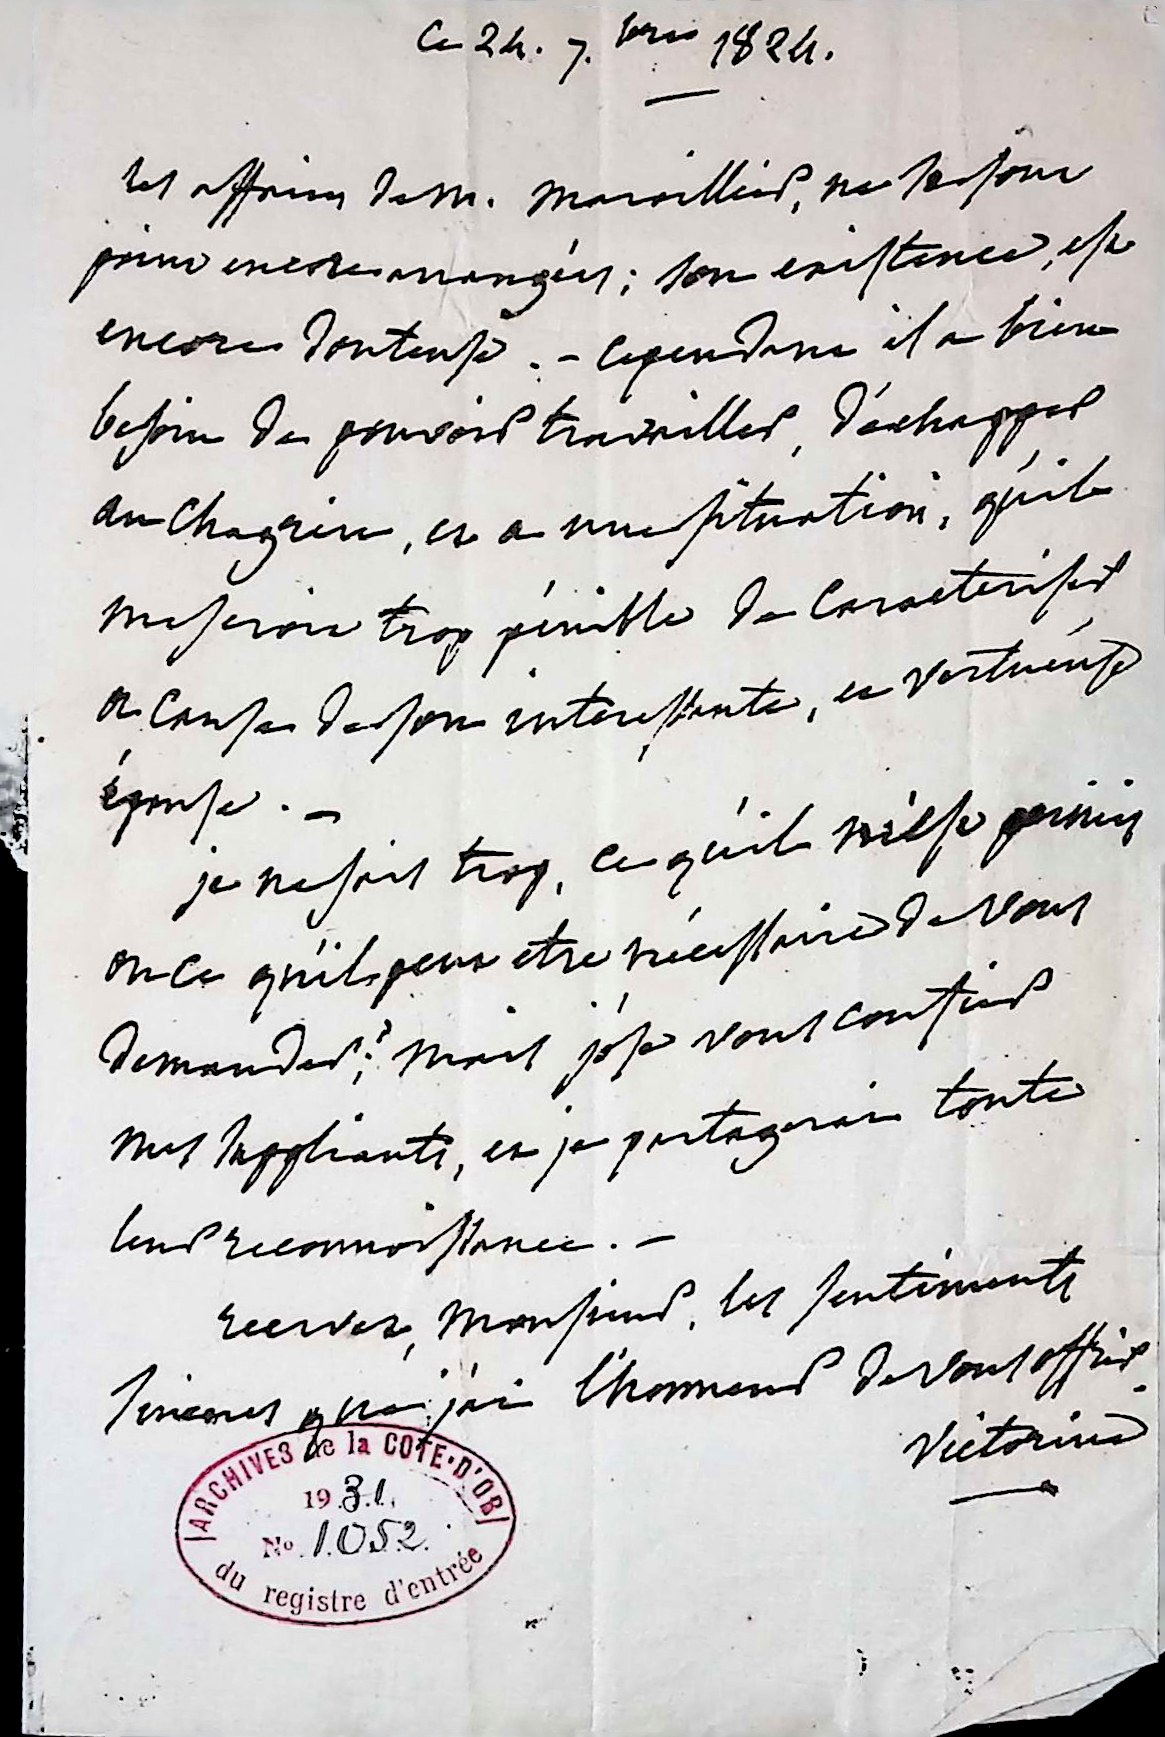 Ce 24. 7.bre 1824.
les affaires de M. Marvillier, ne se sont
point encore arrangées ; son existence, est
encore douteuse . - cependant il a bien
besoin de pouvoir travailler, d'échapper
au Chagrin, et a une situation, qu'il
me seroit trop pénible de caracteriser
a cause de son interessante, et vertuéuse
épouse . -
je ne sais trop, ce qu'il m'est permis
ou ce qu'il peut etre nécessaire de vous
demander ; ? mais j'ose vous confier
mes suppliants, et je partagerai toute
leur reconnoissance . -
recevez, Monsieur, les sentiments
sinceres que j'ai l'honneur de vous offrir.
Victorine
ARCHIVES de la COTE-D'OR
19 31.
No. 1052.
du registre d'entrée